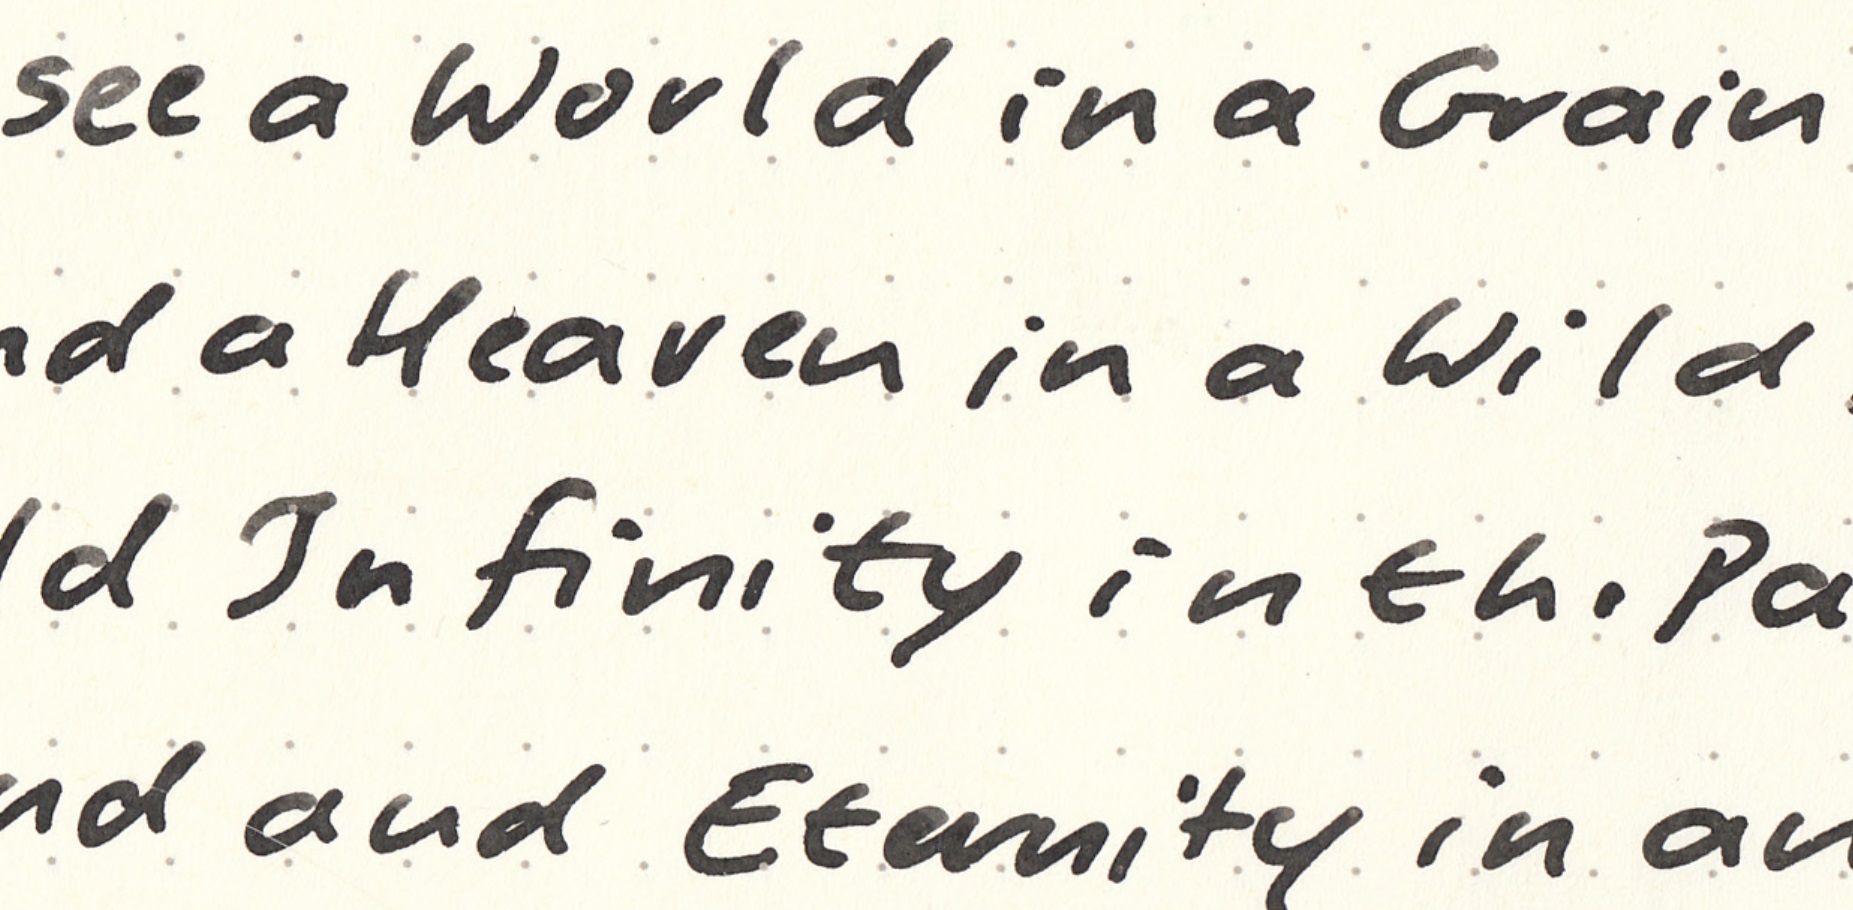 see a World in a Grain
nd a Heaven in a Wild
ld Infinity in th. Pa
nd and Eternity in an